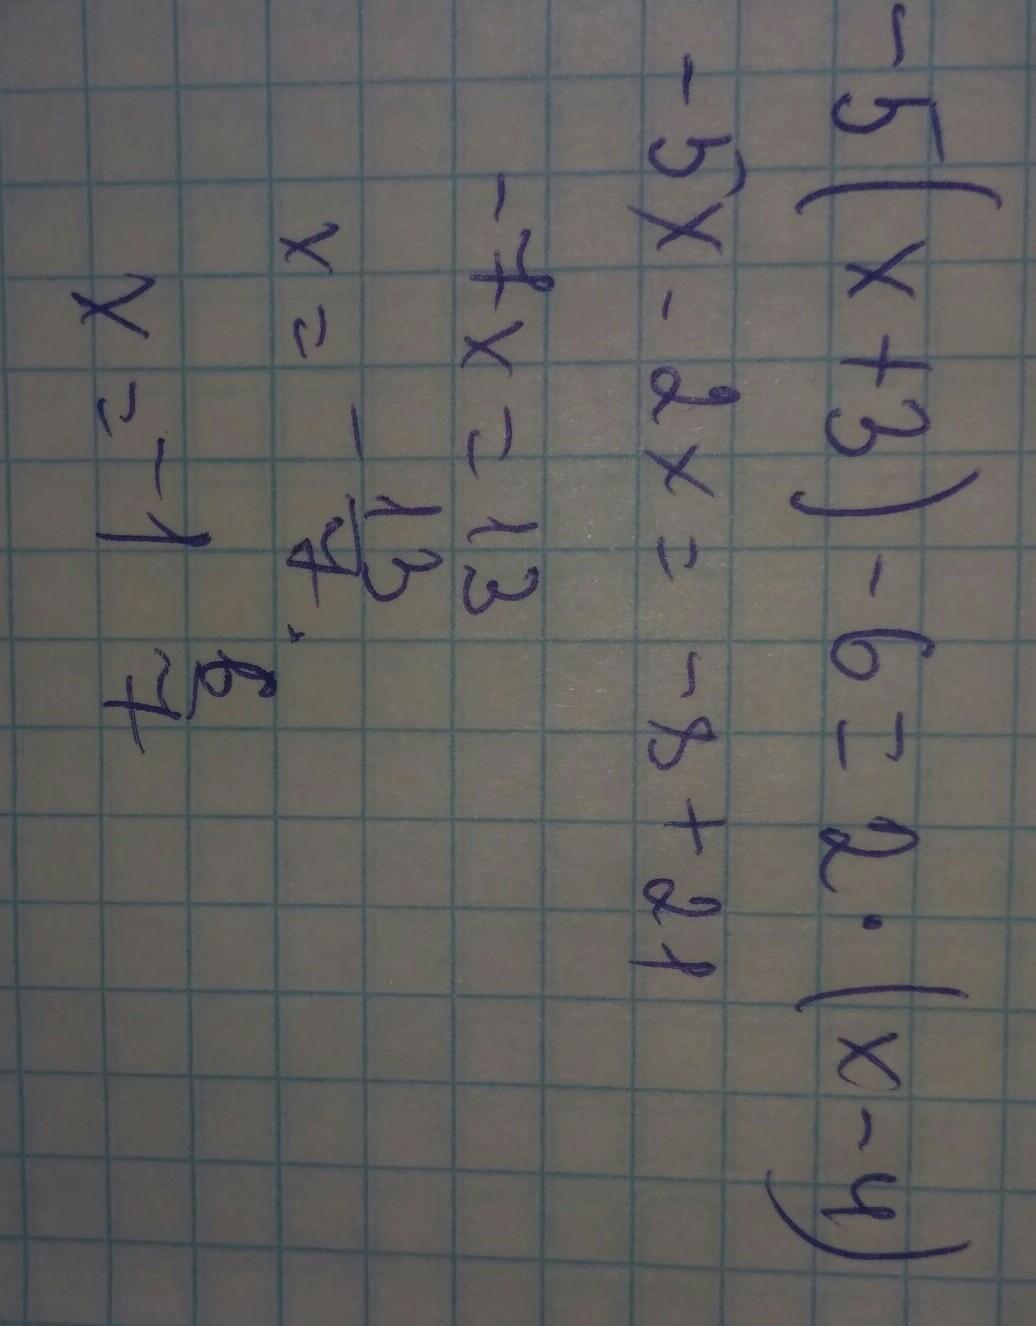 -5(x+3)-6=2·(x-4)
-5x-2x=-8+21
-7x=13
x=-13/7
x=-1 6/7